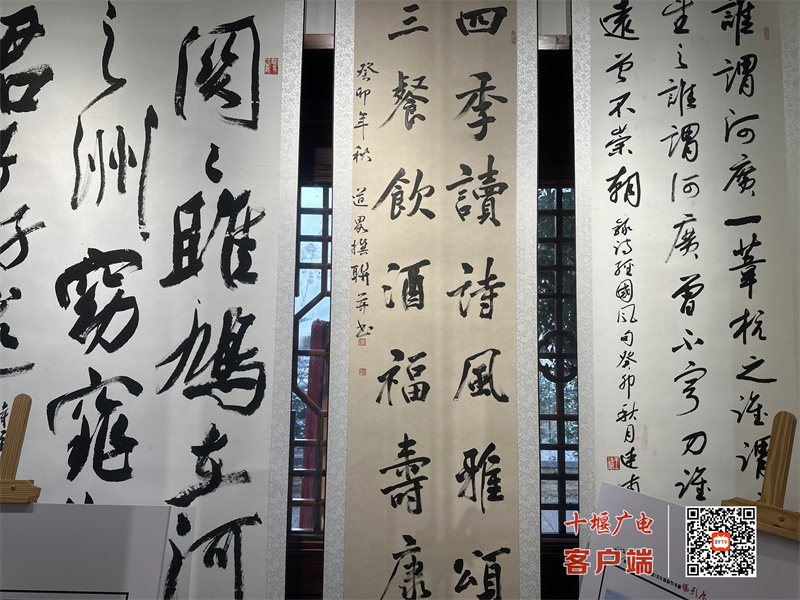 誰謂河廣一葦杭之誰謂
望之誰謂河廣曾不容刀誰
遠曾不崇朝
錄詩經國風句癸卯秋月
四季讀詩風雅頌
三餐飲酒福壽康
癸卯年秋 道 撰聯并书
關〻雎鳩在河
之洲窈窕
君子好逑
十堰广电
客户端
SYTV